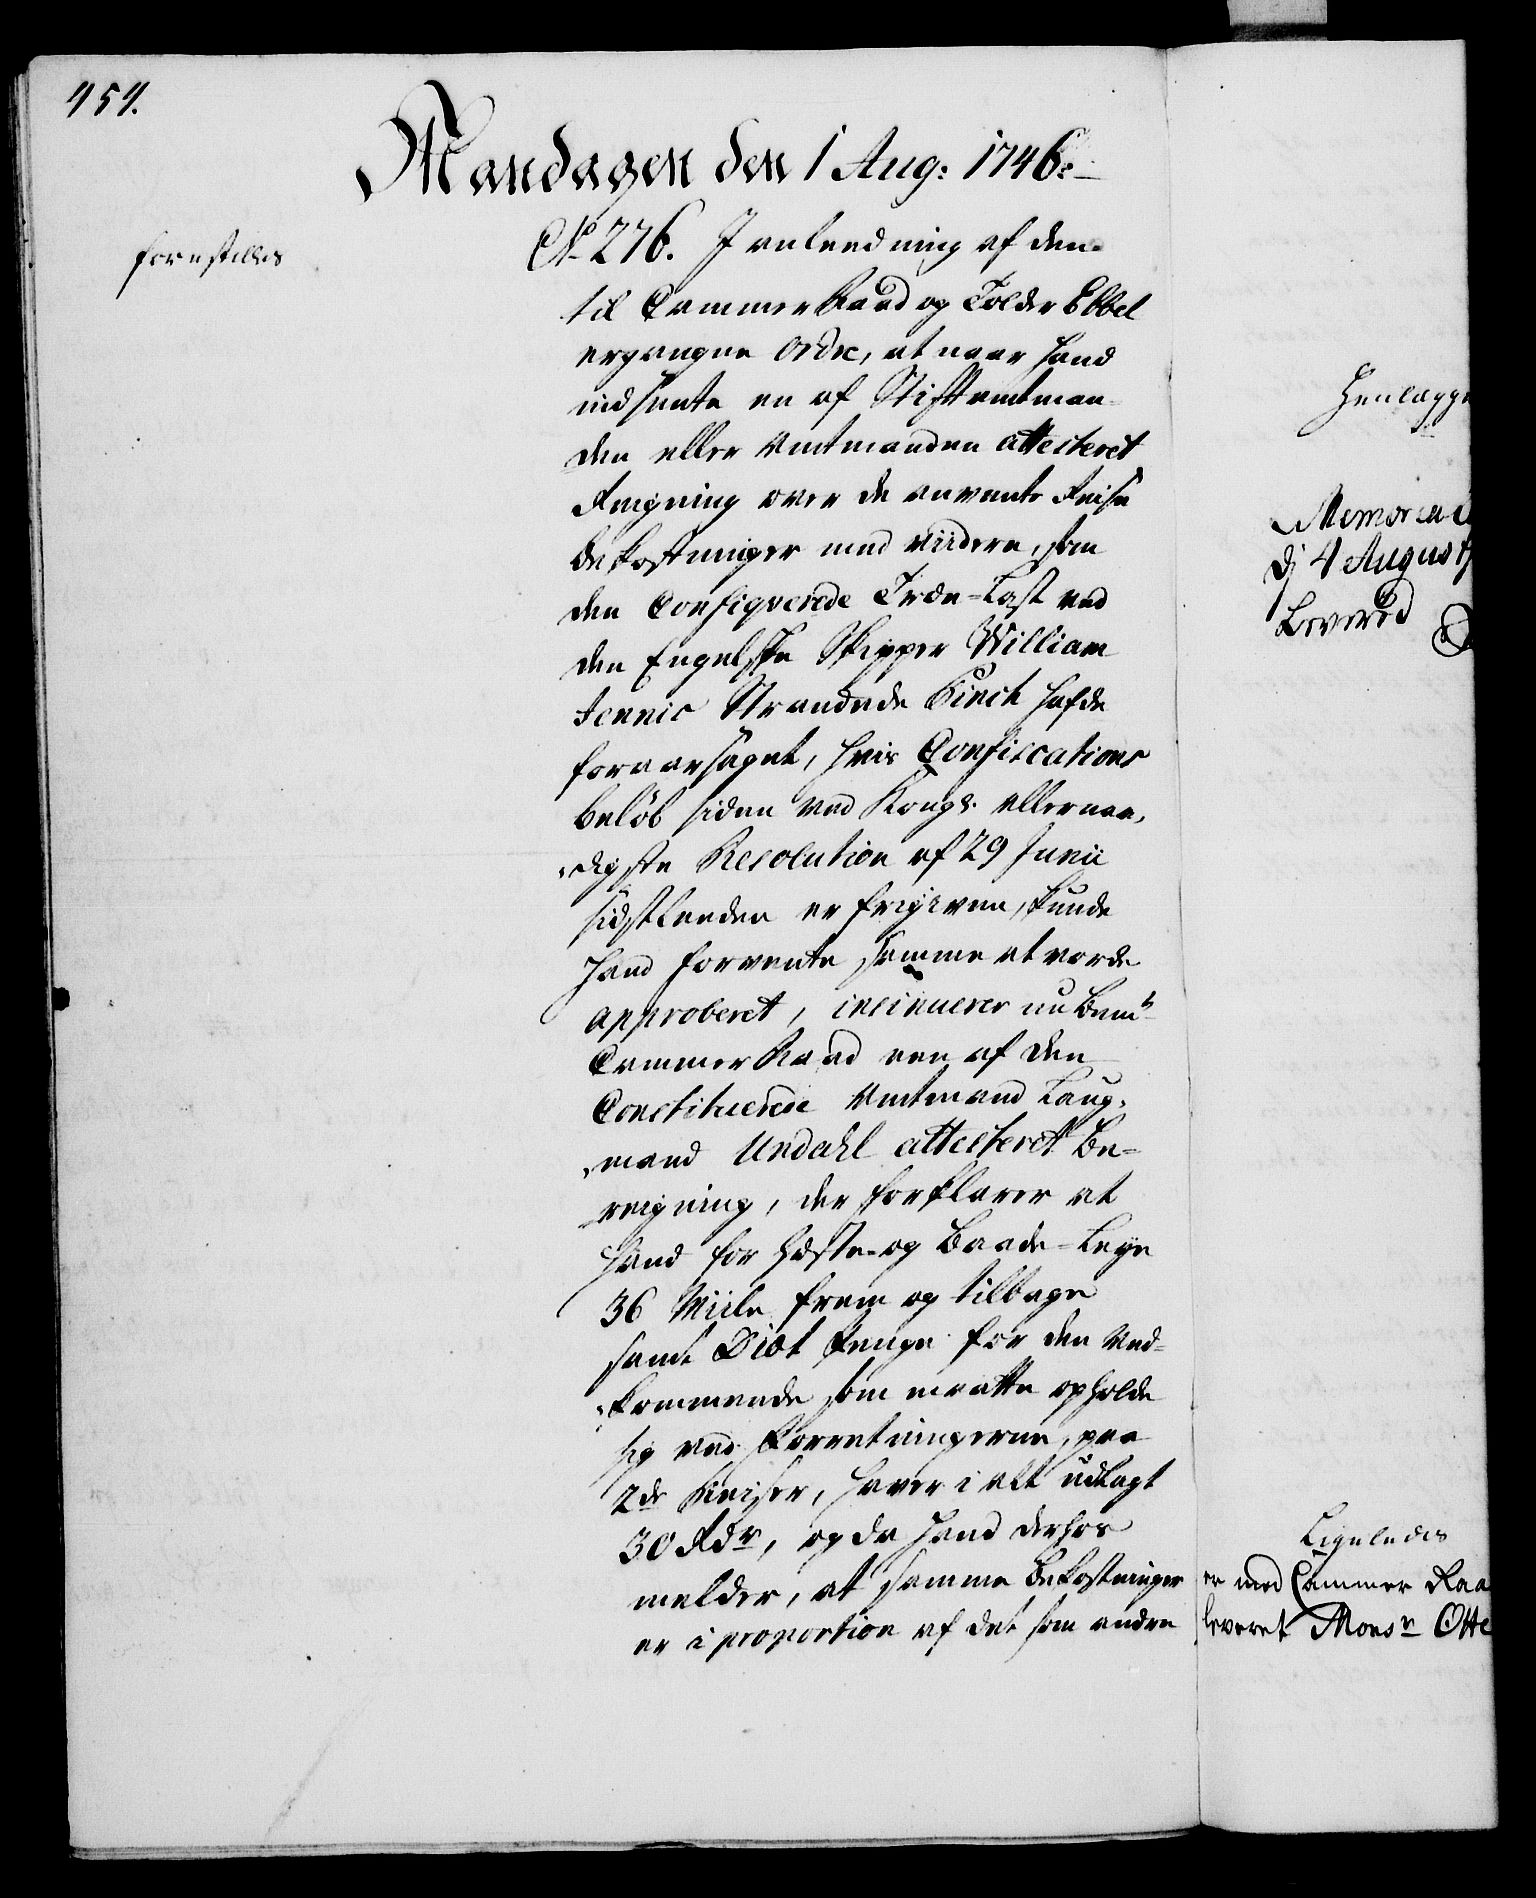 454.
Mandagen den 1 Aug: 1746.
forestilles
No 276. I anleedning af den
til Cammer Raad og Tolder Ebbel
ergangne Ordre, at naar hand
indsente en af Stiftamtman-
den eller Amtmanden attesteret
Reigning over de anvente Reise
bekostninger med viidere, som
den Confiqverede Træe-Last ved
den Engelske Skipper William
Jennis Strandede Skib hafde
foraarsaget, hvis Confiscations
beløb siden ved Kongl. allernaa-
digste Resolution af 29 Junii
sidstleeden er frigiven, kunde
hand forvente samme at vorde
approberet, insinuerer nu bemte
Cammer Raad een af den
Constituerede Amtmand Laug-
mand Undahl attesteret Be-
reigning, der forklarer at
hand for Heste- og Baade-Leye
36 Miile frem og tilbage
samt Diæt Penge for den Ved-
kommende som maatte opholde
sig ved Forretningerne, paa
2de Reiser, haver i alt udlagt
30 Rdr, og da hand derhos
melder, at samme bekostninger
er i proportion af det som andre
Henlægge
Memorial
Dj 4 August
Levered
Ligeledes
er med Cammer Raa
leveret Monsr Otte